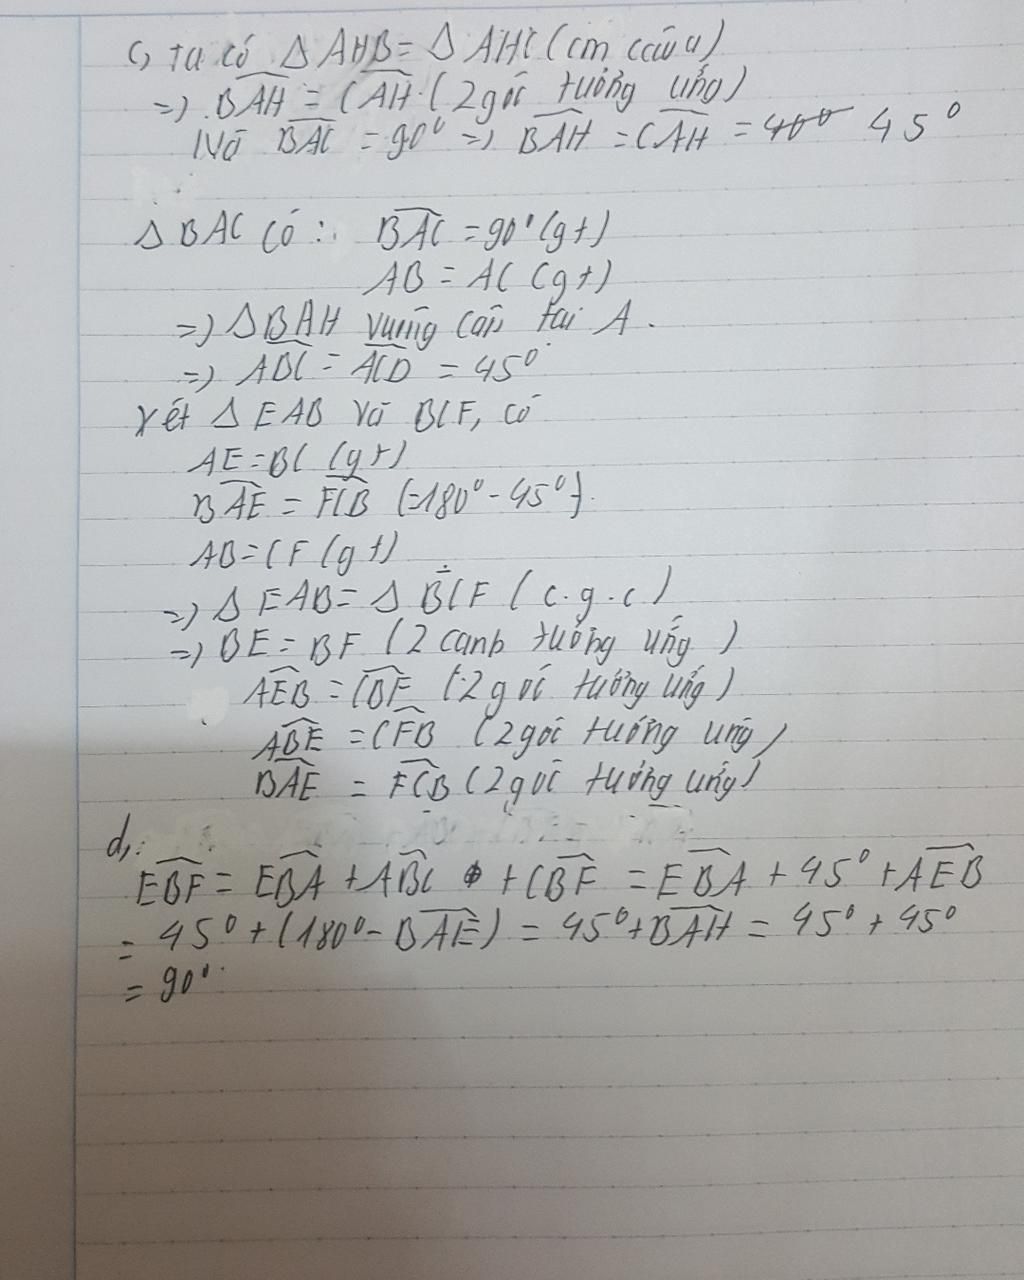 c, ta có Δ AHB = Δ AHC (cm câu a)
=> BAH = CAH (2 góc tương ứng)
Mà BAC = 90⁰ => BAH = CAH = 45⁰
Δ BAC có: BAC = 90⁰ (gt)
AB = AC (gt)
=> Δ BAH vuông cân tại A.
=> ABC = ACD = 45⁰
Xét Δ EAB và BCF, có
AE = BC (gt)
BAE = FCB (=180⁰ - 45⁰).
AB = CF (gt)
=> Δ EAB = Δ BCF (c.g.c)
=> BE = BF (2 cạnh tương ứng)
AEB = CBF (2 góc tương ứng)
ABE = CFB (2 góc tương ứng)
BAE = FCB (2 góc tương ứng)
d,:
EBF = EBA + ABC + CBF = EBA + 45⁰ + AEB
= 45⁰ + (180⁰ - BAE) = 45⁰ + BAH = 45⁰ + 45⁰
= 90⁰.